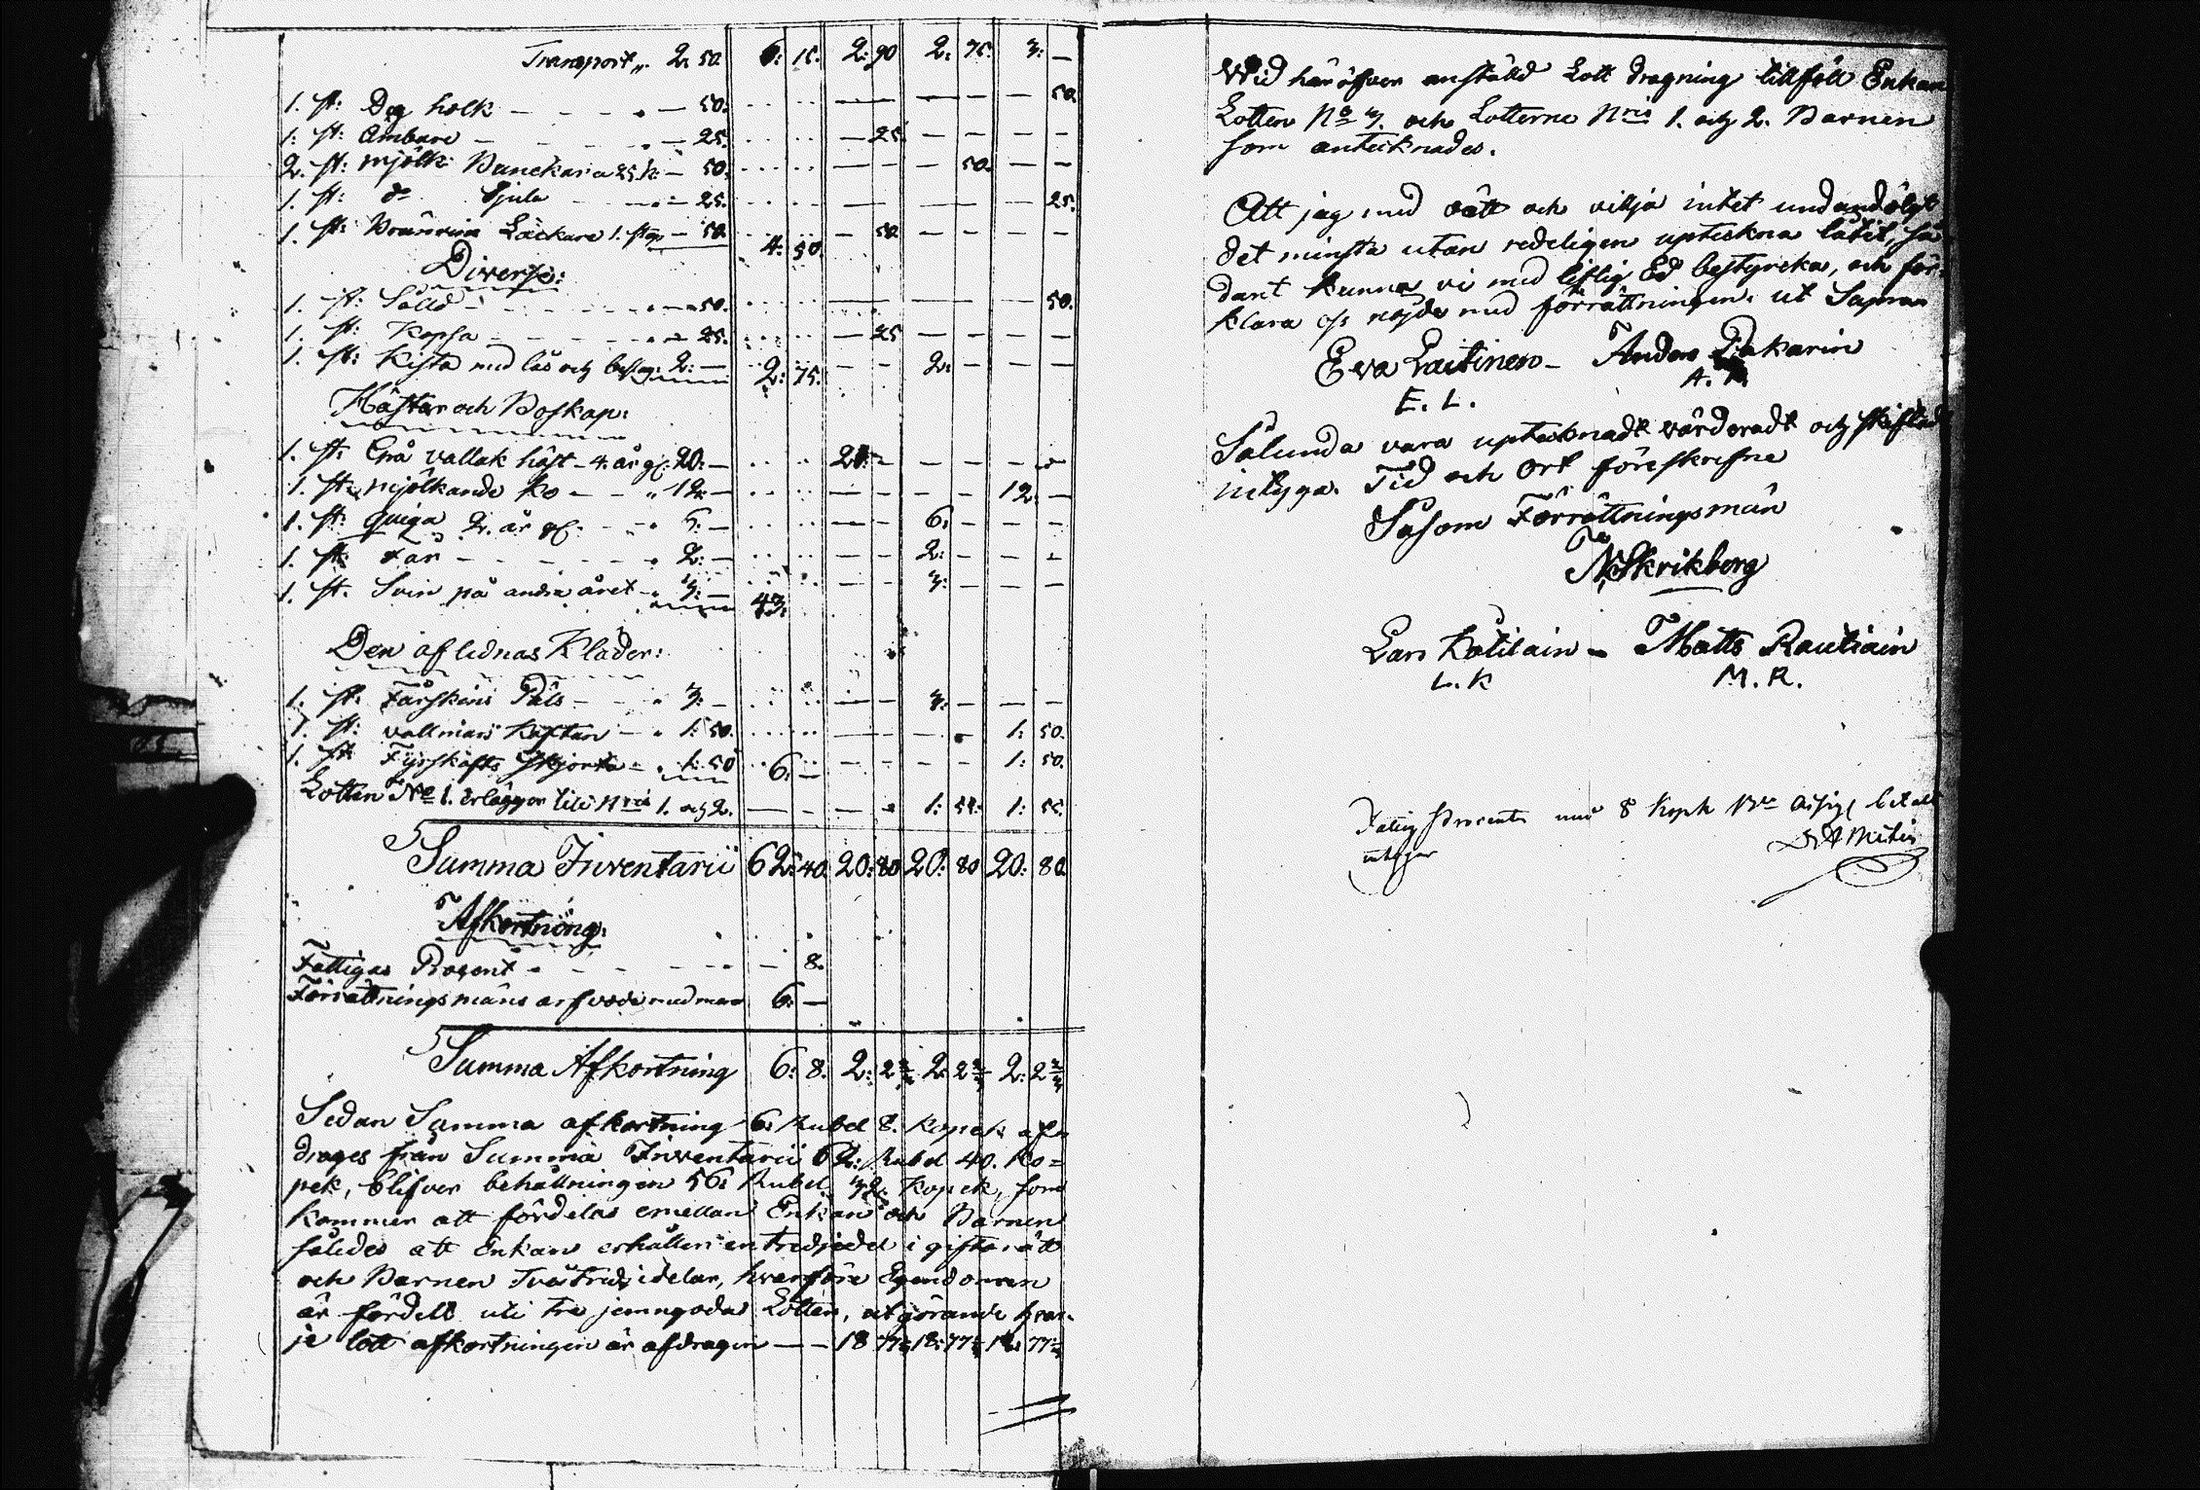 Transport „ 2. 50. 6: 15. 2: 90 2: 75. 3: —
1. st: Deg holk — — — — 50: — — — — 50.
1: st: Ämbare — — — 25: — 25. — — — —
2. st: mjölk Bunckar a 25 k: — 50: — — — 50. — —
1. st: do Spila — — 25. — — — — 25.
1. st: Bränvins Läckare 1. stop — 50. 4: 50. — 50. — — — —
Diverse:
1. st: Såll — — — 50. — — — — 50.
1. st: Kopsa — — — 25. — 25 — — — —
1. st: Kista med lås och beslag: 2: — 2: 75. — — 2: — — —
Hästar och Boskap:
1. st: Grå vallak häst — 4. år gl: 20: — 20: — — — — —
1. st: mjölkande Ko — — „ 12: — — — — — 12. —
1. st: quiga 2. år gl: — — 6: — — — 6: — — —
1. st: Får — — — — 2: — — — 2: — — —
1. st. Svin på andra året — 3: — 43: — — 3: — — —
Den aflidnas Kläder:
1. st: Fårskins Päls — — 3: — — — 3: — — —
1. st: vallmars Kaftan — 1: 50. — — — — 1: 50.
1. st: Fyrskafts Skjorta — 1: 50 6: — — — — — 1: 50.
Lotten No 1. erlägger till Nris 1. och 2. — — — — 1: 55: 1: 55.
Summa Inventarii 62: 40. 20: 80 20: 80 20: 80.
Afkortning:
Fattigas Procent — — — — — 8.
Förrättningsmäns arfvode med mera 6: —
Summa Afkortning 6: 8. 2: 2 2/3 2: 2 2/3 2: 2 2/3
Sedan Summa afkortning 6: Rubel 8. Kopek afn
drages från Summa Inventarii 62: Rubel 40. Ko=
pek, blifver behållningen 56: Rubel 32. Kopek, som
kommer att fördelas emellan Enkan och Barnen
således att Enkan erhåller en tredjedel i giftorätt
och Barnen Två tredjedelar, hvarföre Egendomen
är fördelt uti tre jemngoda Lotter, utgörande hvar-
je lott afkortningen är afdragen — — 18 77 1/3 18: 77 1/3 18: 77 1/3
Wid häröfver anstäld Lott dragning tillföll Enkan
Lotten No 3. och Lotterne Nris 1. och 2. Barnen
som antecknades.
Att jag med vett och vilja intet undandölgt
det minsta utan redeligen upteckna låtit, så
dant kunna vi med liflig Ed bestyrcka, och för
klara oss nöjde med förrättningen. ut Supra
Eva Laitinen — Anders Pakarin
E. L. A. P.
Sålunda vara uptecknadt värderadt och skiftadt
intyga. Tid och Ort föreskrefne
Såsom Förrättningsmän
N. Skrikberg
Lars Kotilain — Matts Rautiain
L. K M. R.
Fattig Procenten med 8 Kop Bco Assig: betalt
intyger